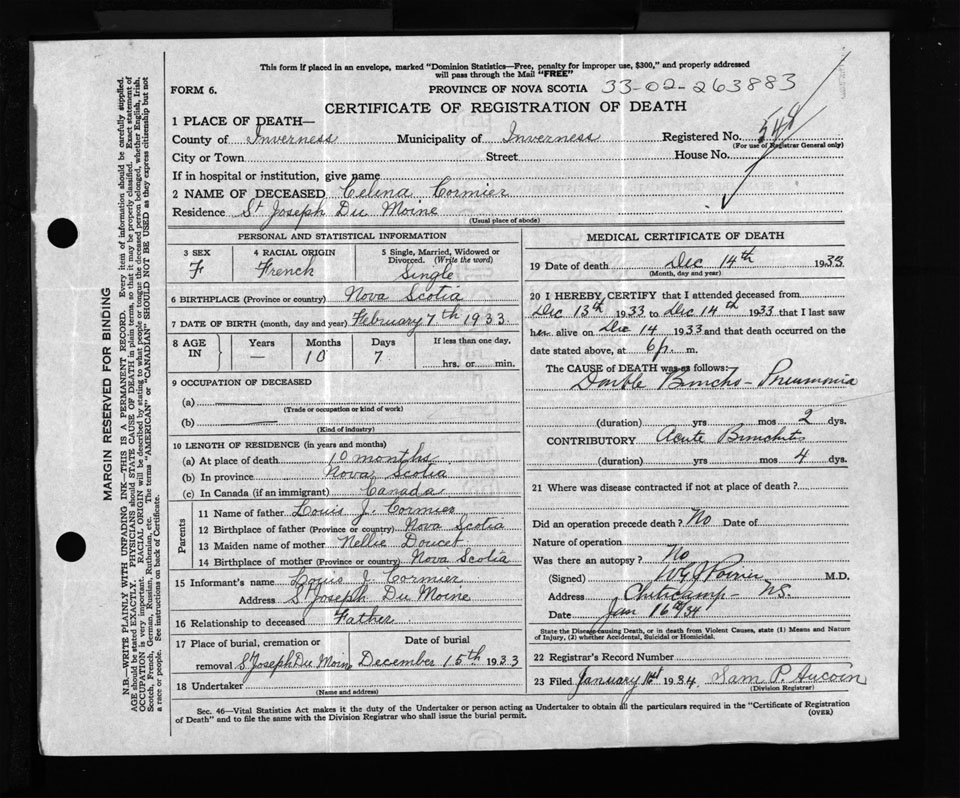 This form if placed in an envelope, marked "Dominion Statistics—Free, penalty for improper use, $300," and properly addressed
will pass through the Mail "FREE"
FORM 6.
PROVINCE OF NOVA SCOTIA 33-02-263883
CERTIFICATE OF REGISTRATION OF DEATH
1 PLACE OF DEATH—
County of Inverness Municipality of Inverness Registered No. 548
(For use of Registrar General only)
City or Town Street House No.
If in hospital or institution, give name
2 NAME OF DECEASED Celina Cormier
Residence St Joseph Du Moine
(Usual place of abode)
PERSONAL AND STATISTICAL INFORMATION
3 SEX F
4 RACIAL ORIGIN French
5 Single, Married, Widowed or
Divorced. (Write the word)
Single
6 BIRTHPLACE (Province or country) Nova Scotia
7 DATE OF BIRTH (month, day and year) February 7th 1933
8 AGE IN Years — Months 10 Days 7 If less than one day,
hrs. or min.
9 OCCUPATION OF DECEASED
(a)
(Trade or occupation or kind of work)
(b)
(Kind of industry)
10 LENGTH OF RESIDENCE (in years and months)
(a) At place of death 10 months
(b) In province Nova Scotia
(c) In Canada (if an immigrant) Canada
Parents
11 Name of father Louis J. Cormier
12 Birthplace of father (Province or country) Nova Scotia
13 Maiden name of mother Nellie Doucet
14 Birthplace of mother (Province or country) Nova Scotia
15 Informant's name Louis J. Cormier
Address St Joseph Du Moine
16 Relationship to deceased Father
17 Place of burial, cremation or Date of burial
removal St Joseph Du Moine December 15th 1933
18 Undertaker
(Name and address)
MEDICAL CERTIFICATE OF DEATH
19 Date of death Dec 14th 1933
(Month, day and year)
20 I HEREBY CERTIFY that I attended deceased from
Dec 13th 1933 to Dec 14th 1933 that I last saw
her alive on Dec 14 1933 and that death occurred on
date stated above, at 6p m.
The CAUSE of DEATH was as follows:
Double Broncho-Pneumonia
(duration) yrs mos 2 dys.
CONTRIBUTORY Acute Bronchitis
(duration) yrs mos 4 dys.
21 Where was disease contracted if not at place of death?
Did an operation precede death? No Date of
Nature of operation
Was there an autopsy? No
(Signed) Poirier M.D.
Address Cheticamp- NS.
Date Jan 16th/34
State the Disease causing Death, or in death from Violent Causes, state (1) Means and Nature
of Injury, (2) whether Accidental, Suicidal or Homicidal.
22 Registrar's Record Number
23 Filed January 1934 Sam P. Aucoin
(Division Registrar)
Sec. 46—Vital Statistics Act makes it the duty of the Undertaker or person acting as Undertaker to obtain all the particulars required in the "Certificate of Registration
of Death" and to file the same with the Division Registrar who shall issue the burial permit.
(OVER)
MARGIN RESERVED FOR BINDING
N.B.—WRITE PLAINLY WITH UNFADING INK—THIS IS A PERMANENT RECORD. Every item of information should be carefully supplied.
AGE should be stated EXACTLY. PHYSICIANS should STATE CAUSE OF DEATH in plain terms, so that it may be properly classified. Exact statement of
OCCUPATION is very important. RACIAL ORIGIN will be described by stating to what people or tongue the deceased person belonged, whether English, Irish,
Scotch, French, German, Russian, Ruthenian, etc. The terms "AMERICAN" or "CANADIAN" SHOULD NOT BE USED as they express citizenship but not
a race or people. See instructions on back of Certificate.